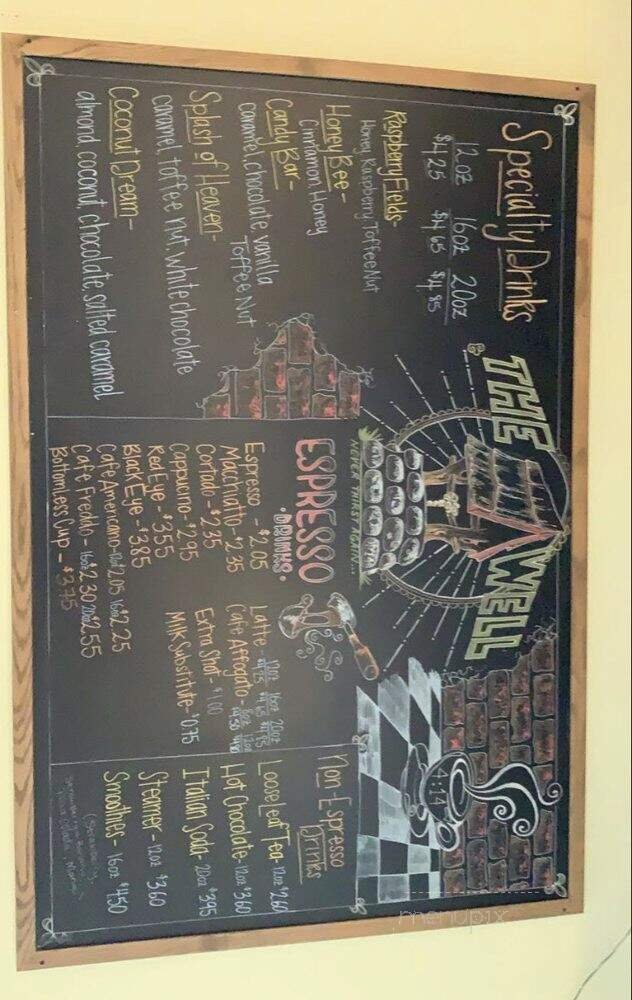 Specialty Drinks
12oz 16oz 20oz
$4.25 $4.65 $4.85
Raspberry Fields-
Honey Raspberry Toffee Nut
Honey Bee-
Cinnamon, Honey
Candy Bar-
caramel, chocolate, vanilla
Toffee Nut
Splash of Heaven-
caramel, toffee nut, white chocolate
Coconut Dream-
almond, coconut, chocolate, salted caramel
THE WELL
NEVER THIRST AGAIN...
ESPRESSO
·DRINKS·
Espresso - $2.05
Macchiatto - $2.35
Cortado - $2.35
Cappucino - $2.95
Red Eye - $3.55
Black Eye - $3.85
Cafe Americano - 12oz $2.05 16oz $2.25
Cafe Freddo - 16oz $2.30 20oz $2.55
Bottomless Cup - $3.75
Latte - 12oz 16oz 20oz
Cafe Affogato - 8oz 12oz
Extra Shot - $1.00
Milk Substitute - $0.75
4:14
Non-Espresso
Drinks
Loose Leaf Tea - 12oz $2.60
Hot Chocolate - 12oz $3.60
Italian Soda - 20oz $3.95
Steamer - 12oz $3.60
Smoothies - 16oz $4.50
menupix